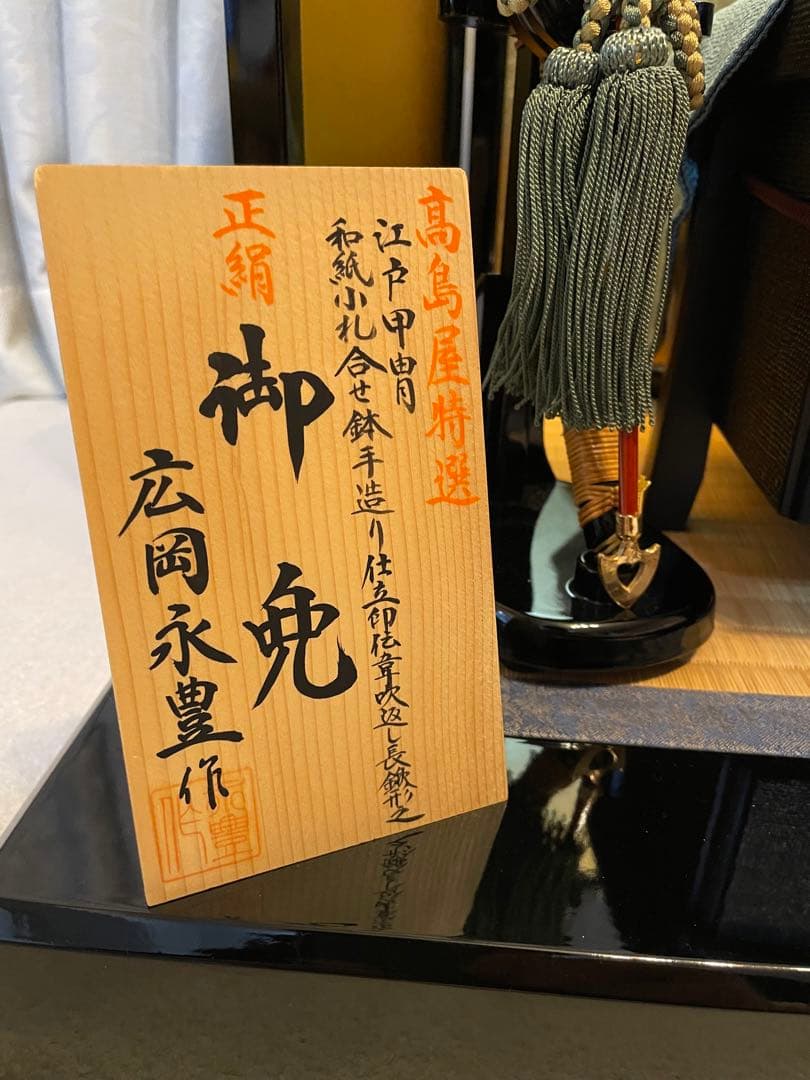 高島屋特選
江戸甲冑
和紙小札合せ鉢手造り仕立印伝韋吹返し長鍬形之
正絹
御免
広岡永豊作